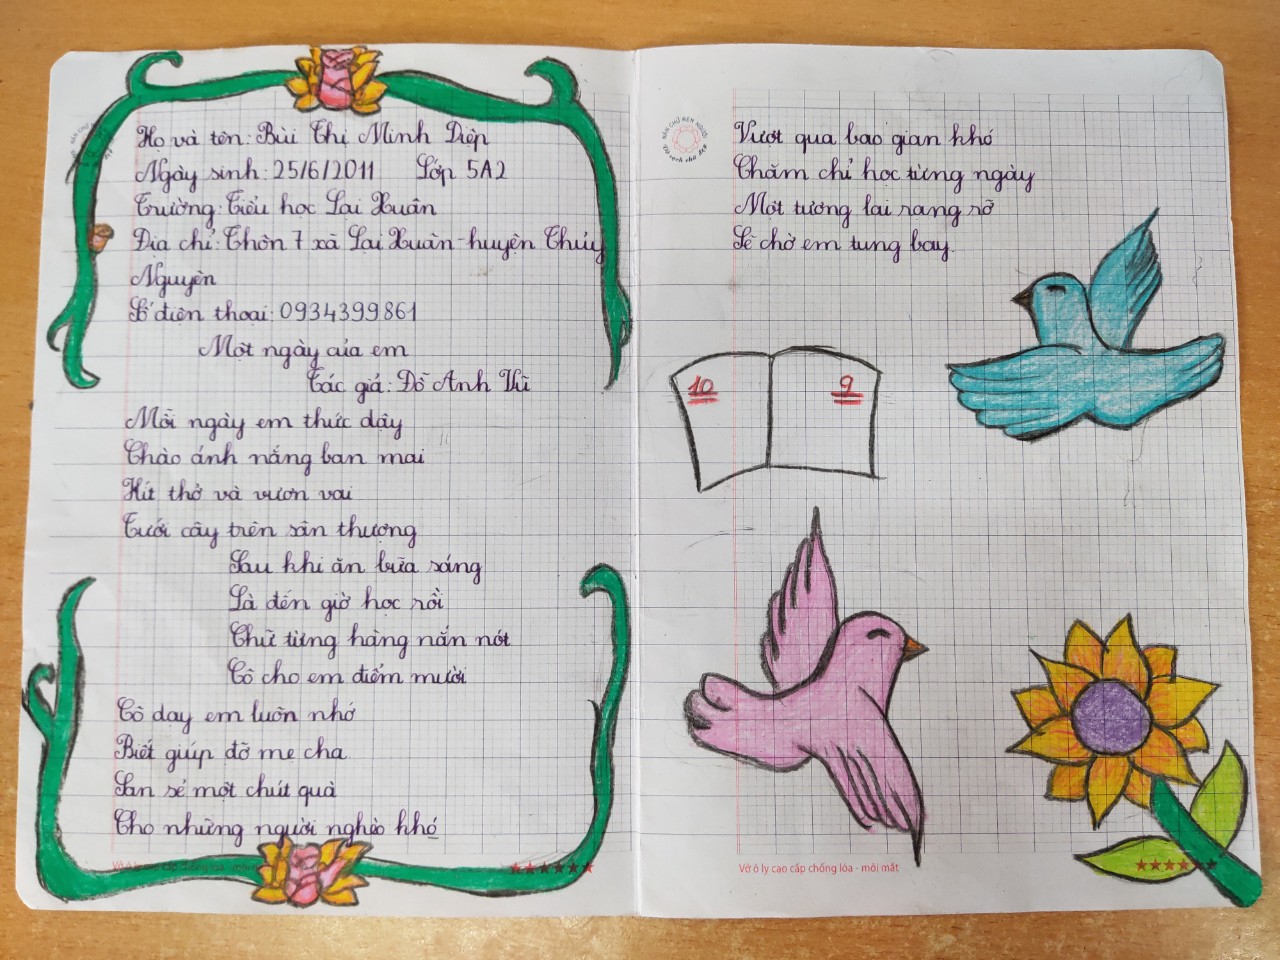 Họ và tên: Bùi Thị Minh Diệp
Ngày sinh: 25/6/2011 Lớp 5A2
Trường: Tiểu học Lại Xuân
Địa chỉ: Thôn 7 xã Lại Xuân - huyện Thủy
Nguyên
Số điện thoại: 0934399861
Một ngày của em
Tác giả: Đỗ Anh Vũ
Mỗi ngày em thức dậy
Chào ánh nắng ban mai
Hít thở và vươn vai
Tưới cây trên sân thượng
Sau khi ăn bữa sáng
Là đến giờ học rồi
Chữ từng hàng nắn nót
Cô cho em điểm mười
Cô dạy em luôn nhớ
Biết giúp đỡ mẹ cha
San sẻ một chút quà
Cho những người nghèo khó
Vở ô ly cao cấp chống lóa - mỏi mắt
NÂN CHỮ RÈN NGƯỜI
Vở sạch chữ đẹp
Vượt qua bao gian khó
Chăm chỉ học từng ngày
Một tương lai rạng rỡ
Sẽ chờ em tung bay.
10
9
Vở ô ly cao cấp chống lóa - mỏi mắt